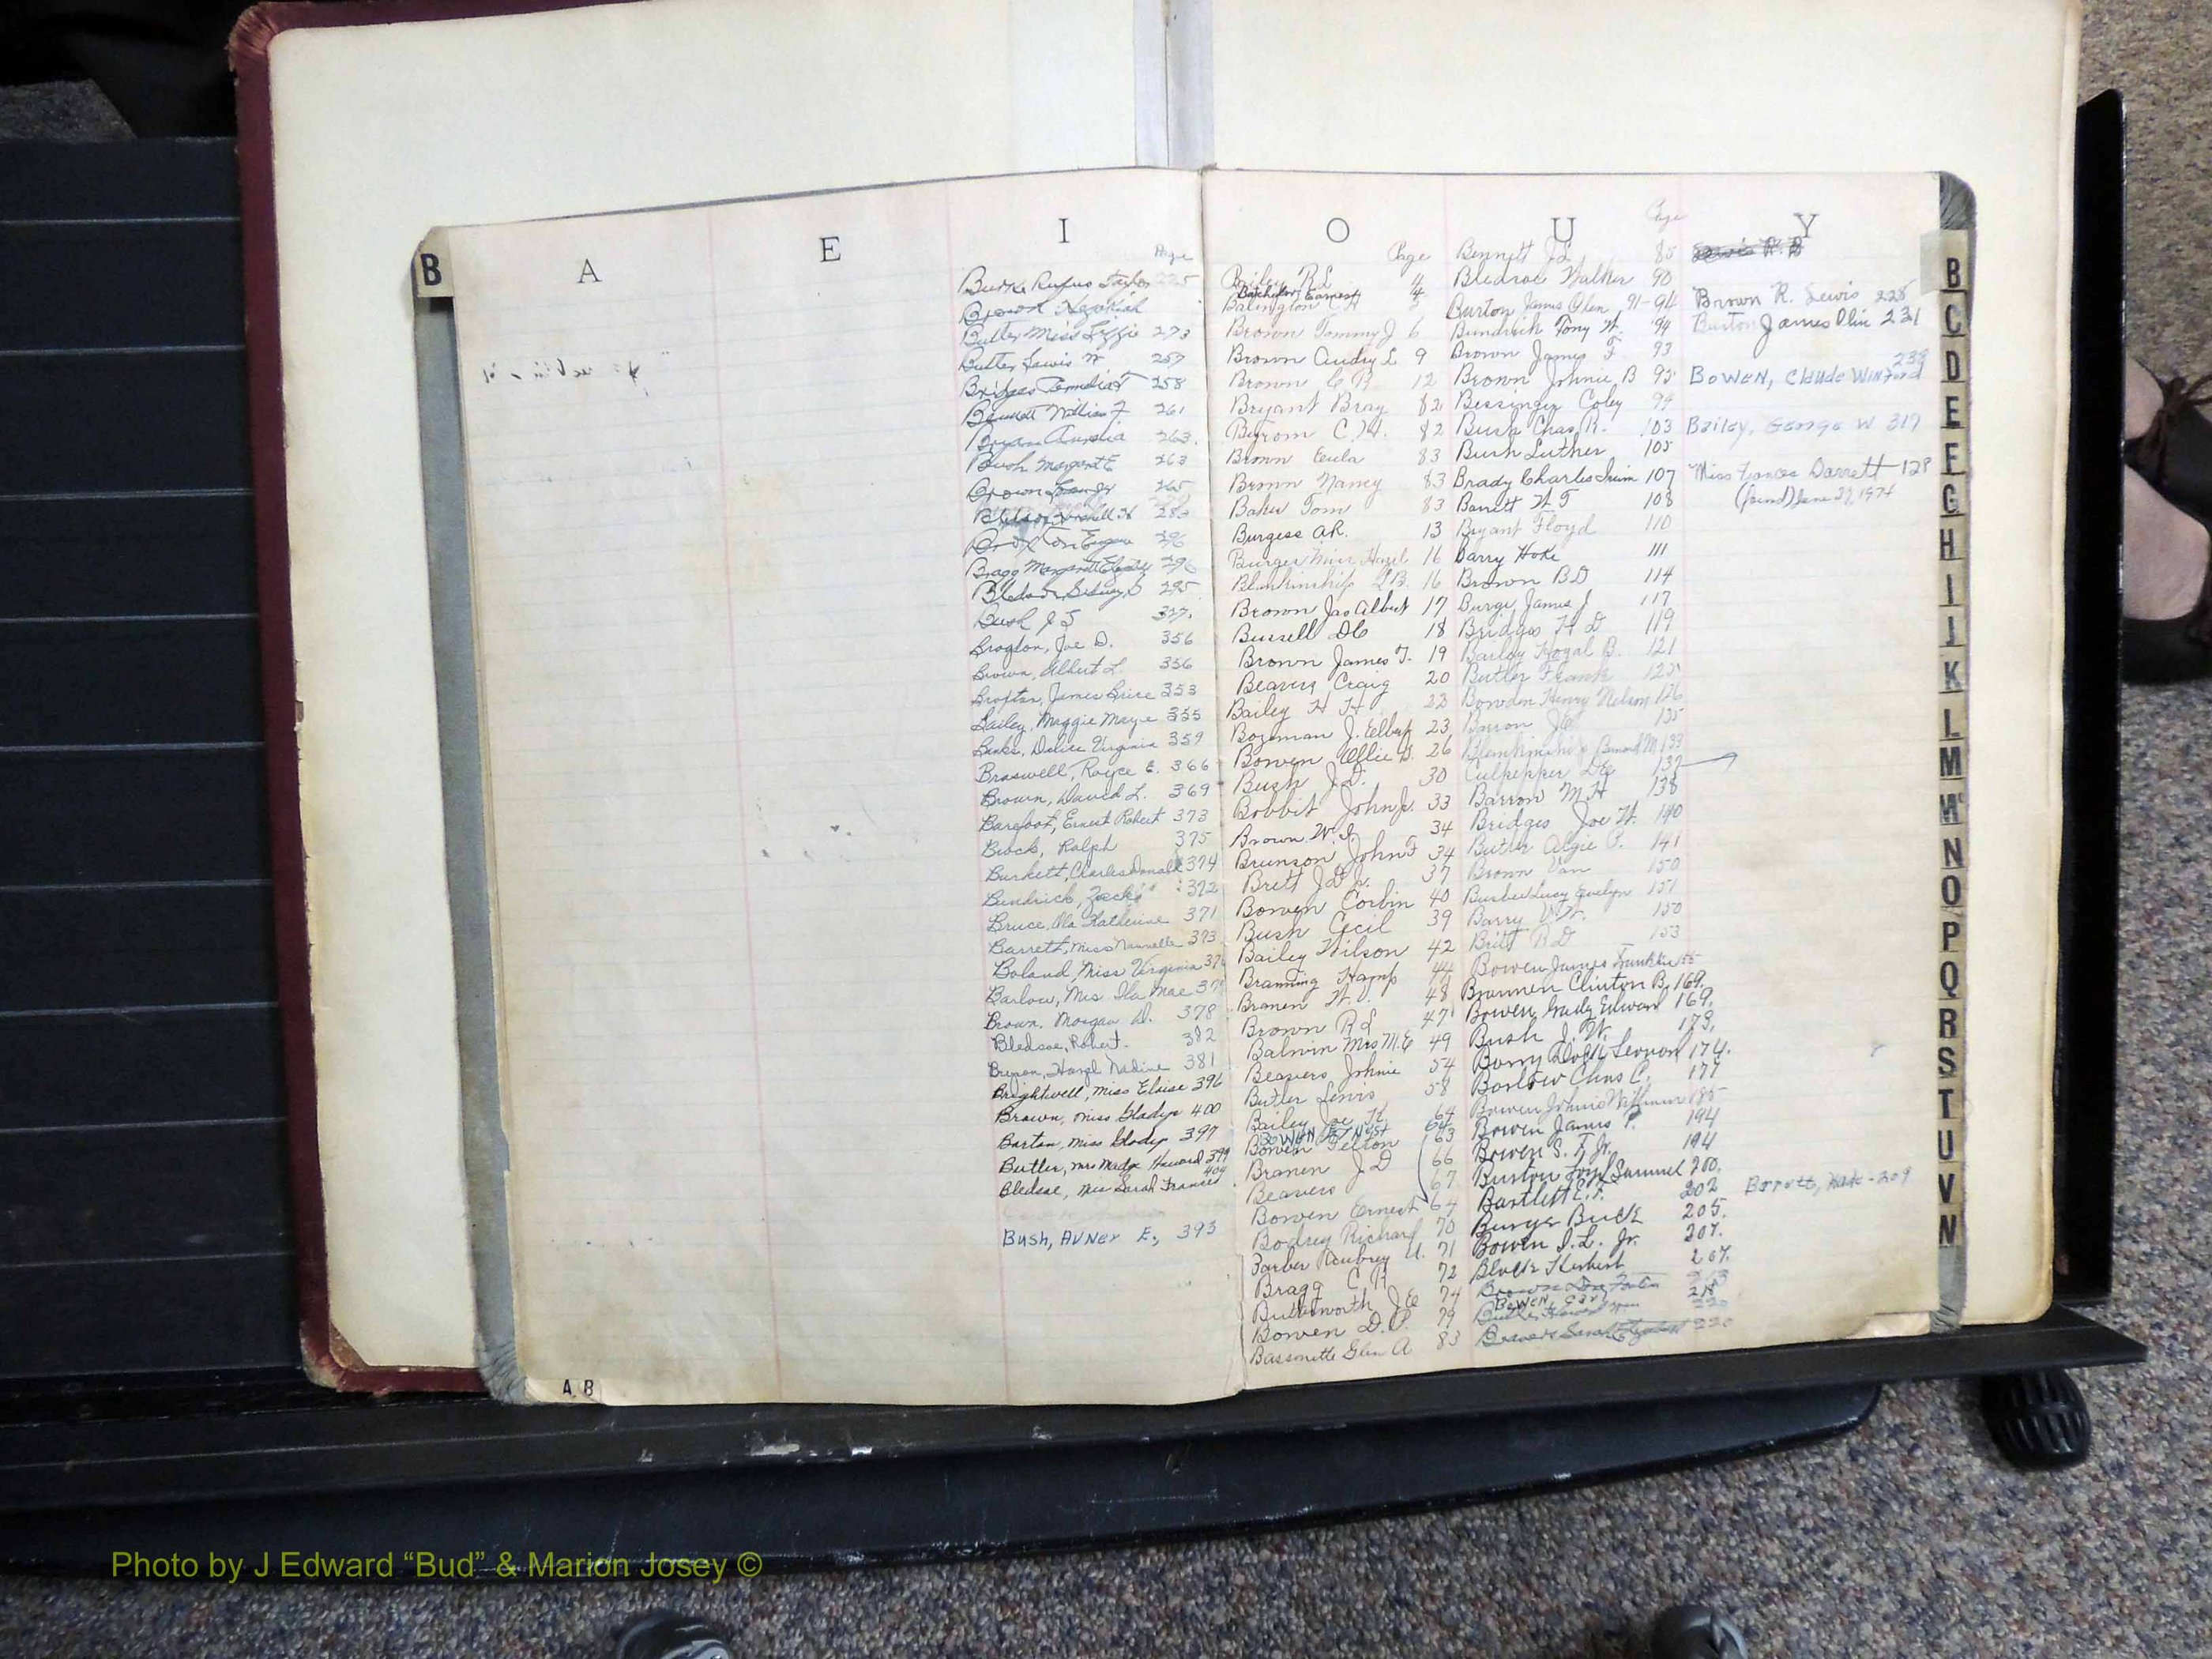 B
A
E
I
Page
Burke Rufus Taylor 225
Brown Hezikiah
Butler Miss Lizzie 273
Butler Lewis W 257
Bridges 258
Bennett William F 261
Bryan Aurelia 263.
Bush Margaret E 263
Brown 265
Braxton Eugene 296
Bragg Margarett 296
Bledsoe Sidney S 295
Bush J S 317.
Brogdon, Joe D. 356
Brown, Albert L. 356
James Brice 353
Bailey, Maggie Maye 355
Banks, Delice Virginia 359
Braswell, Royce E. 366
Brown, David L. 369
Barefoot, Ernest Robert 373
Brock, Ralph 375
Burkett, Charles Donald 374
Bundrick, Zack 372
Bruce, Ola Katherine 371
Barrett, Miss Nannelle 373
Boland, Miss Virginia
Barlow, Mrs Ila Mae
Brown, Morgan W. 378
Bledsoe, Robert. 382
Hazel Nadine 381
Brightwell, Miss Eloise 396
Brown, Miss Gladys 400
Barton, Miss Gladys 397
Butler, Mrs Madge Howard 399
Bledsoe, Miss Sarah Frances 404
Bush, AVNer E, 393
A B
O
Page
Bailey R L 4
Batchelor, Earnest 4
Babington C H 5
Brown Tommy J 6
Brown Audry L 9
Brown C R 12
Bryant Bray 82
Byrom C. H. 82
Brown Eula 83
Brown Nancy 83
Baker Tom 83
Burgess A.R. 13
Burges Miss Hazel 16
Blankinship J B. 16
Brown Jas Albert 17
Bussell D C 18
Brown James T. 19
Beavers Craig 20
Bailey H H 22
Bozeman J. Elbert 23
Bowen Ollie D. 26
Bush J. D. 30
Bobbit John J. 33
Brown W. J. 34
Brunson John F 34
Britt J D Jr. 37
Bowen Corbin 40
Bush Cecil 39
Bailey Wilson 42
Branning Hamp 44
Branen W. 48
Brown R L 47
Balwin Mrs M. E 49
Beavers Johnie 54
Butler Lewis 58
Bailey Joe H. 64
BOWEN ERNEST 64
Bowen Felton 63
Branen J D 66
Beavers 67
Bowen Ernest 64
Bodrey Richard 70
Barber Aubrey U. 71
Bragg C R 72
Butterworth J E 74
Bowen D. P. 79
Bassonette Glen A 83
U
Page
Bennett J L 85
Bledsoe Walker 90
Burton James Olen 91-94
Bundrick Tony W. 94
Brown James F 93
Brown Johnie B 95
Bessinger Coley 99
Bush Chas. R. 103
Bush Luther 105
Brady Charles Irvin 107
Barrett W T 108
Bryant Floyd 110
Barry Hoke 111
Brown B D 114
Burge James J 117
Bridges H D 119
Bailey Hoyal B. 121
Butler Frank 125
Bowden Henry Nelson 126
Barron J C 135
Blankinship M 133
Culpepper D E 137
Barron M. H 138
Bridges Joe W. 140
Butler Algie P. 141
Brown Van 150
Busbee Lucy Evelyn 151
Barry 150
Britt B D 153
Bowen James Franklin 155
Brannen Clinton B. 169.
Bowen Grady Edward 169.
Bush J. W. 173.
Barry Vernon 174.
Barlow Chas C. 177
Bowen Johnie William 185
Bowen James P. 194
Bowen S. T. Jr. 194
Burton Loyd Samuel 200.
Bartlett E. F. 202
Burge Buck 205.
Bowen I. L. Jr. 207.
Block Herbert 207.
BOWEN, GARY 218
Beavers Sarah Elizabeth 220
Y
Brown R. Lewis 228
Burton James Olin 231
BOWEN, Claude WINFord 238
Bailey, George W 317
Miss Frances Barrett 128
(found) June 27, 1974
Barrett, - 209
B
C
D
E
F
G
H
I
J
K
L
M
Mc
N
O
P
Q
R
S
T
U
V
W
Photo by J Edward “Bud” & Marion Josey ©